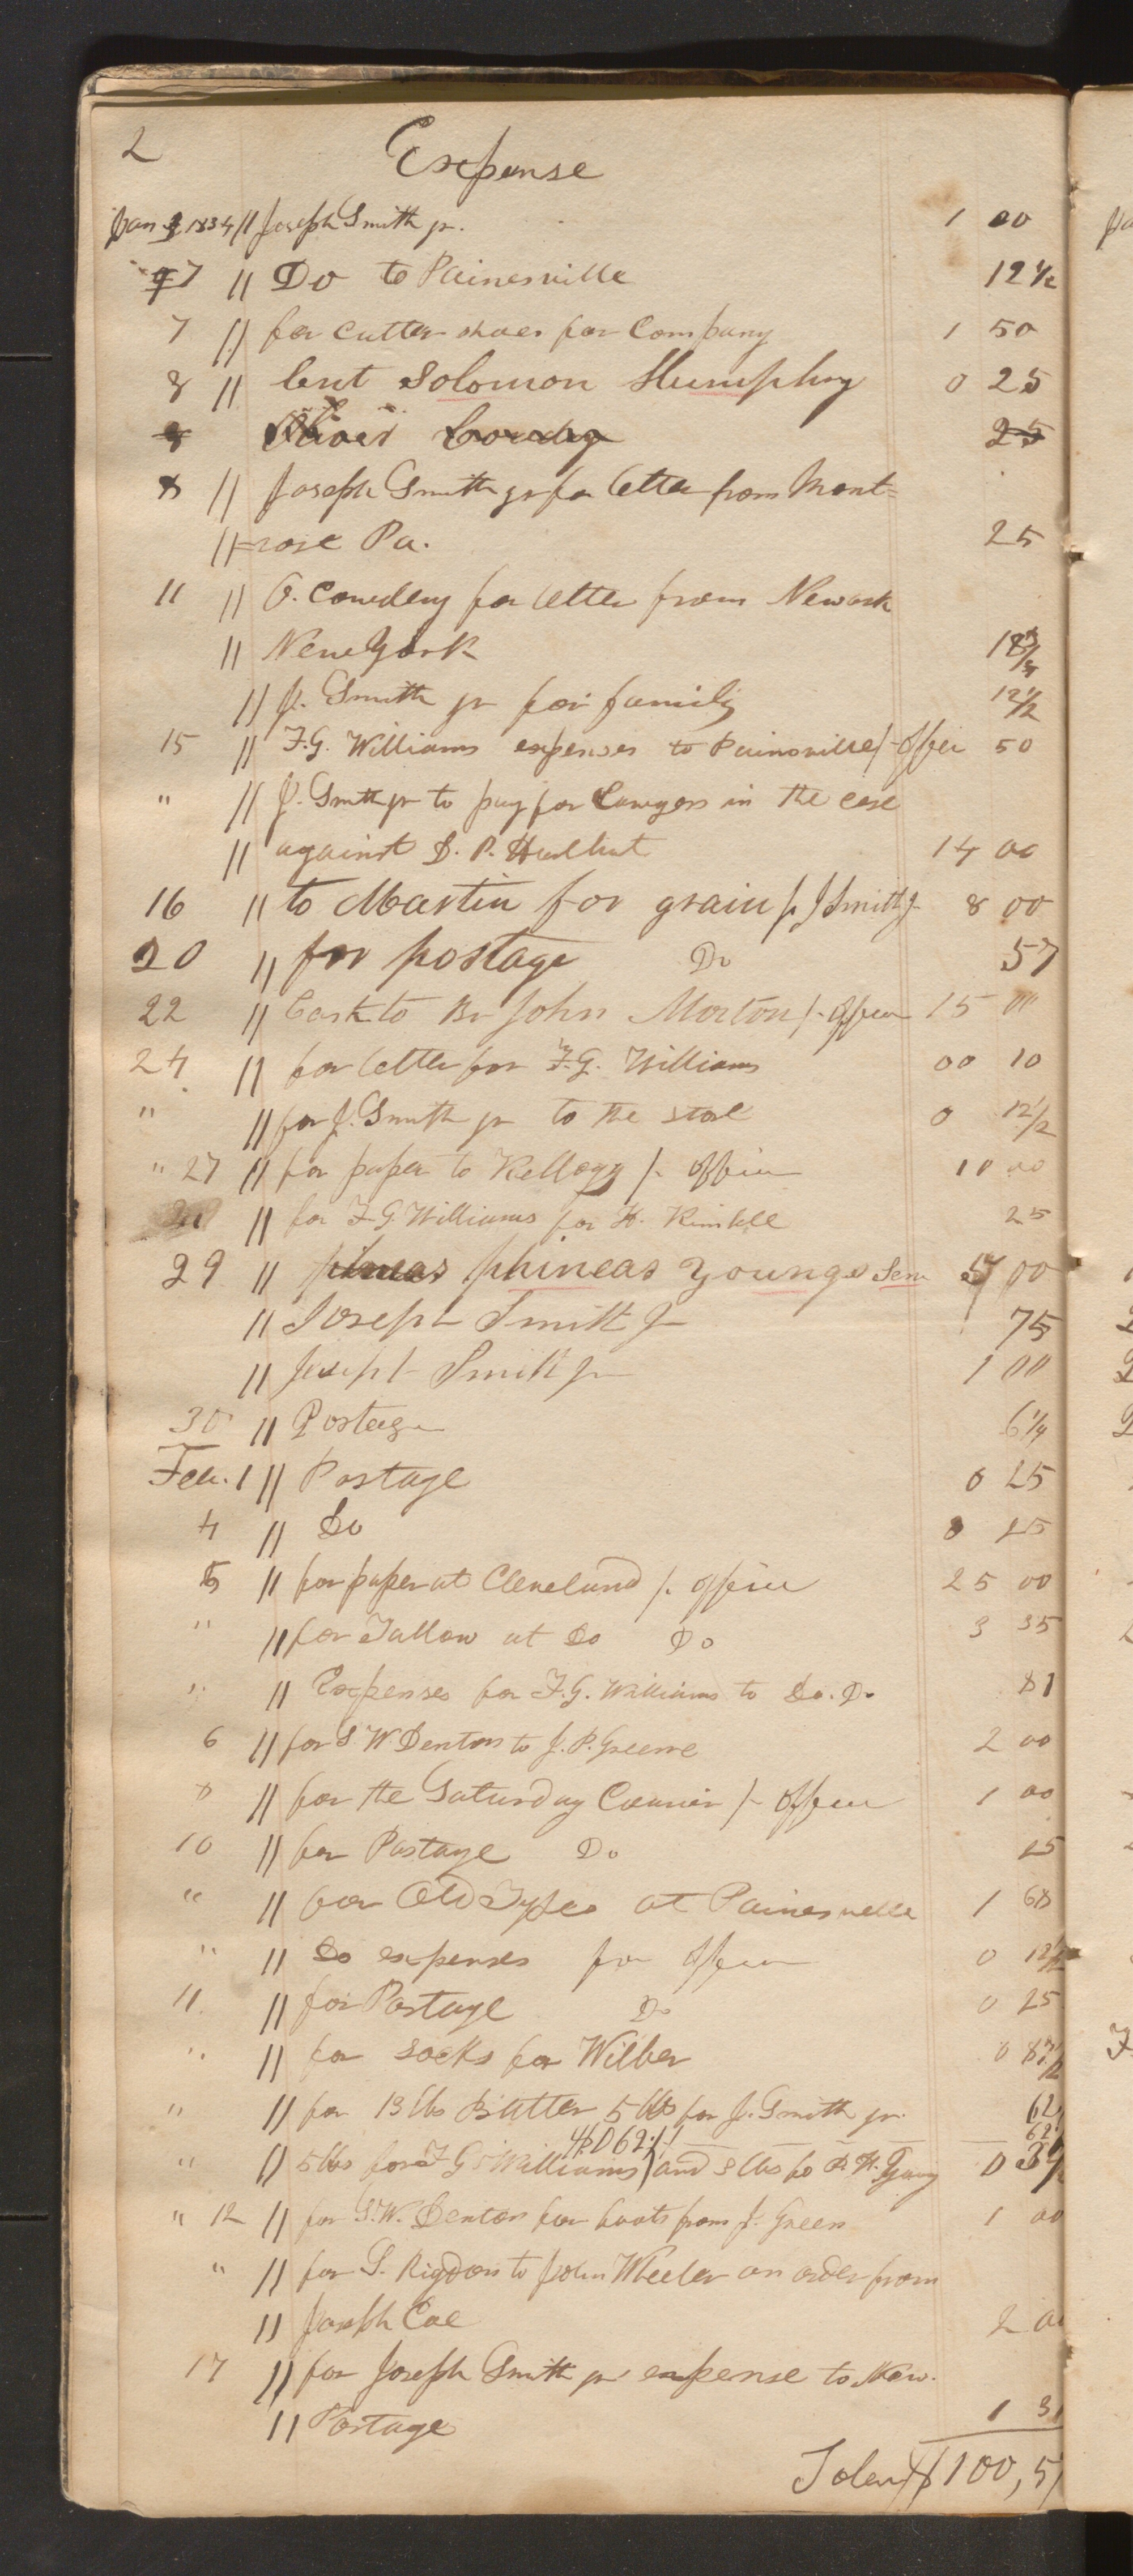 2
Expense
Jan 3 1834 // Joseph Smith jr. 1 00
7 // Do to Painesville 12 1/2
7 // for cutter shoes for Company 1 50
8 // lent Solomon Humphry 0 25
Cowdry 25
8 // Joseph Smith jr for letter from Mont=
// =rose Pa. 25
11 // O. Cowdery for letter from Newark
// New York 18 3/4
// J. Smith jr for family 12 1/2
15 // F.G. Williams expenses to Painsville / office 50
" // J. Smith jr to pay for Lawyers in the case
// against D. P. Hurlbut 14 00
16 // to Martin for grain p J Smith jr 8 00
20 // for postage Do 57
22 // Cash to Br John Morton / office 15 00
24 // for letter for F.G. Williams 00 10
" // for J. Smith jr to the store 0 12 1/2
" 27 // for paper to Kellogg / office 10 00
// for F G Williams for H. Kimball 25
29 // phineas Young 00
// Joseph Smith Jr 75
// Joseph Smith Jr 1 00
30 // Postage 6 1/4
Feb. 1 // Postage 0 25
4 // Do 0 25
5 // for paper at Cleveland / office 25 00
" // for Tallow at Do Do 3 35
" // Expenses for F.G. Williams to Do. Do 81
6 // for S W Denton to J. P. Greene 2 00
8 // for the Saturday Courier / office 1 00
10 // for Postage Do 25
" // for Old Types at Painesville 1 68
" // Do expenses for office 0 12 1/2
11 // for Postage Do 0 25
" // for socks for Wilber 0
" // for 13 lbs Butter 5 lbs for J. Smith jr. 62
" // 5 lbs for F G Williams and 3 lbs to
" 12 // for S.W. Denton for boots from J. Green 1 00
" // for S. Rigdon to John Wheeler on order from
// Joseph Coe 2 00
17 // for Joseph Smith jr expense to New.
// Postage 1 31
$100,5